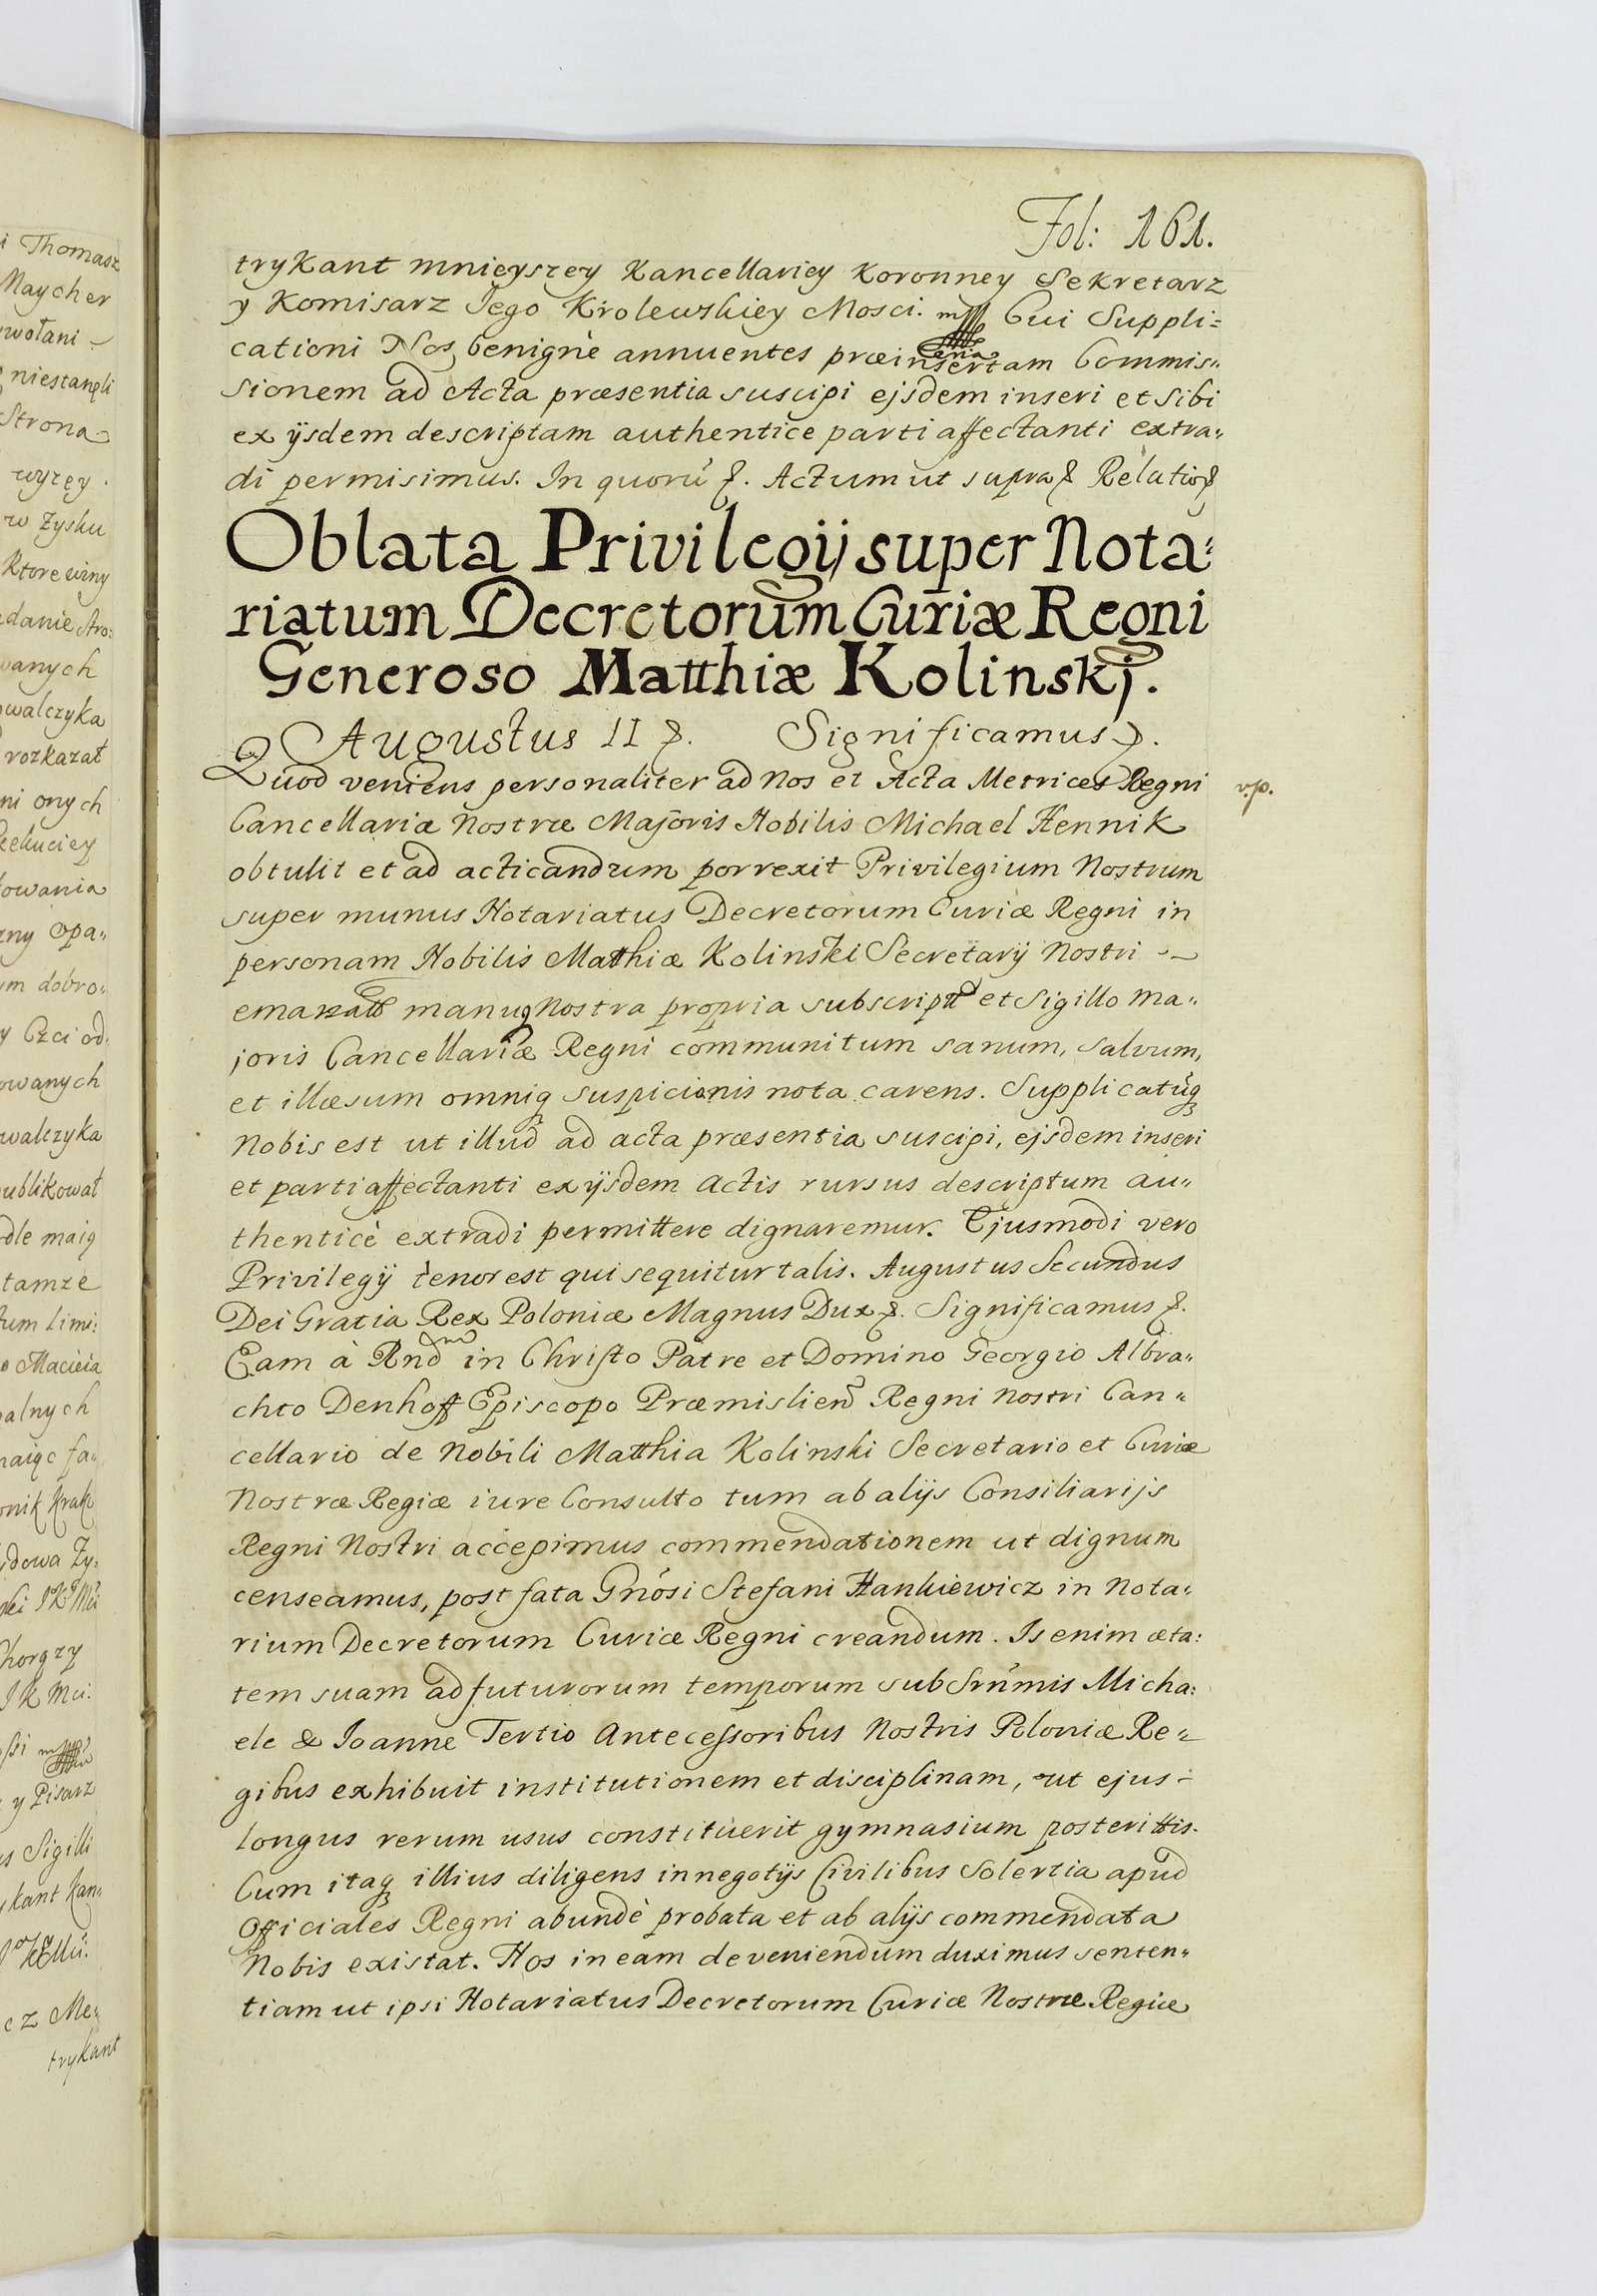 Fol: 161.
trykant mnieyszey Kancellariey Koronney Sekretarz
y Komisarz Jego Krolewskiey Mosci. Cui Suppli=
cationi Nos benignè annuentes præinsertam Commis=
sionem ad Acta præsentia suscipi ejsdem inseri et sibi
ex ijsdem descriptam authentice parti affectanti extra=
di permisimus. In quorũ &. Actum ut supra & Relatio &
Oblata Privilegij super Nota=
riatum Decretorum Curiæ Regni
Generoso Matthiæ Kolinskj.
Augustus II &. Significamus &.
Quod veniens personaliter ad Nos et Acta Metrices Regni
v.p.
Cancellariæ Nostræ Majoris Nobilis Michael Hennik
obtulit et ad acticandum porrexit Privilegium Nostrum
super munus Notariatus Decretorum Curiæ Regni in
personam Nobilis Matthiæ Kolinski Secretarij Nostri
manuq Nostra propria et Sigillo ma=
joris Cancellariæ Regni communitum sanum, salvum,
et illæsum omniq suspicionis nota carens. Supplicatũq
Nobis est ut illud ad acta præsentia suscipi, ejsdem inseri
et parti affectanti ex ijsdem actis rursus descriptum au=
thenticè extradi permittere dignaremur. Ejusmodi vero
Privilegij tenor est qui sequitur talis. Augustus Secundus
Dei Gratia Rex Poloniæ Magnus Dux &. Significamus &.
Eam à Rndᵐᵒ in Christo Patre et Domino Georgio Albra=
chto Denhoff Episcopo Præmislieñ Regni Nostri Can=
cellario de Nobili Matthia Kolinski Secretario et Curiæ
Nostræ Regiæ iure Consulto tum ab alijs Consiliarijs
Regni Nostri accepimus commendationem ut dignum
censeamus, post fata Gnosi Stefani Hankiewicz in Nota=
rium Decretorum Curiæ Regni creandum. Is enim æta=
tem suam ad futurorum temporum sub Srnmis Micha=
ele & Joanne Tertio Antecessoribus Nostris Poloniæ Re=
gibus exhibuit institutionem et disciplinam, ut ejus
longus rerum usus constituerit gymnasium posterittis.
Cum itaq illius diligens in negotijs Civilibus Solertia apud
Officiales Regni abundè probata et ab alijs commendata
Nobis existat. Nos in eam deveniendum duximus senten=
tiam ut ipsi Notariatus Decretorum Curiæ Nostræ Regiæ
i Thomasz
Maycher
niestanęli
Strona
w zysku
Ktore winy
wanych
walczyka
rozkazał
ni onych
owania
m dobro=
y Czci od
owanych
walczyka
ublikował
tamze
Macieia
alnych
onik Krak
y Pisarz
s Sigilli
ykant Kan=
cz Me=
trykant